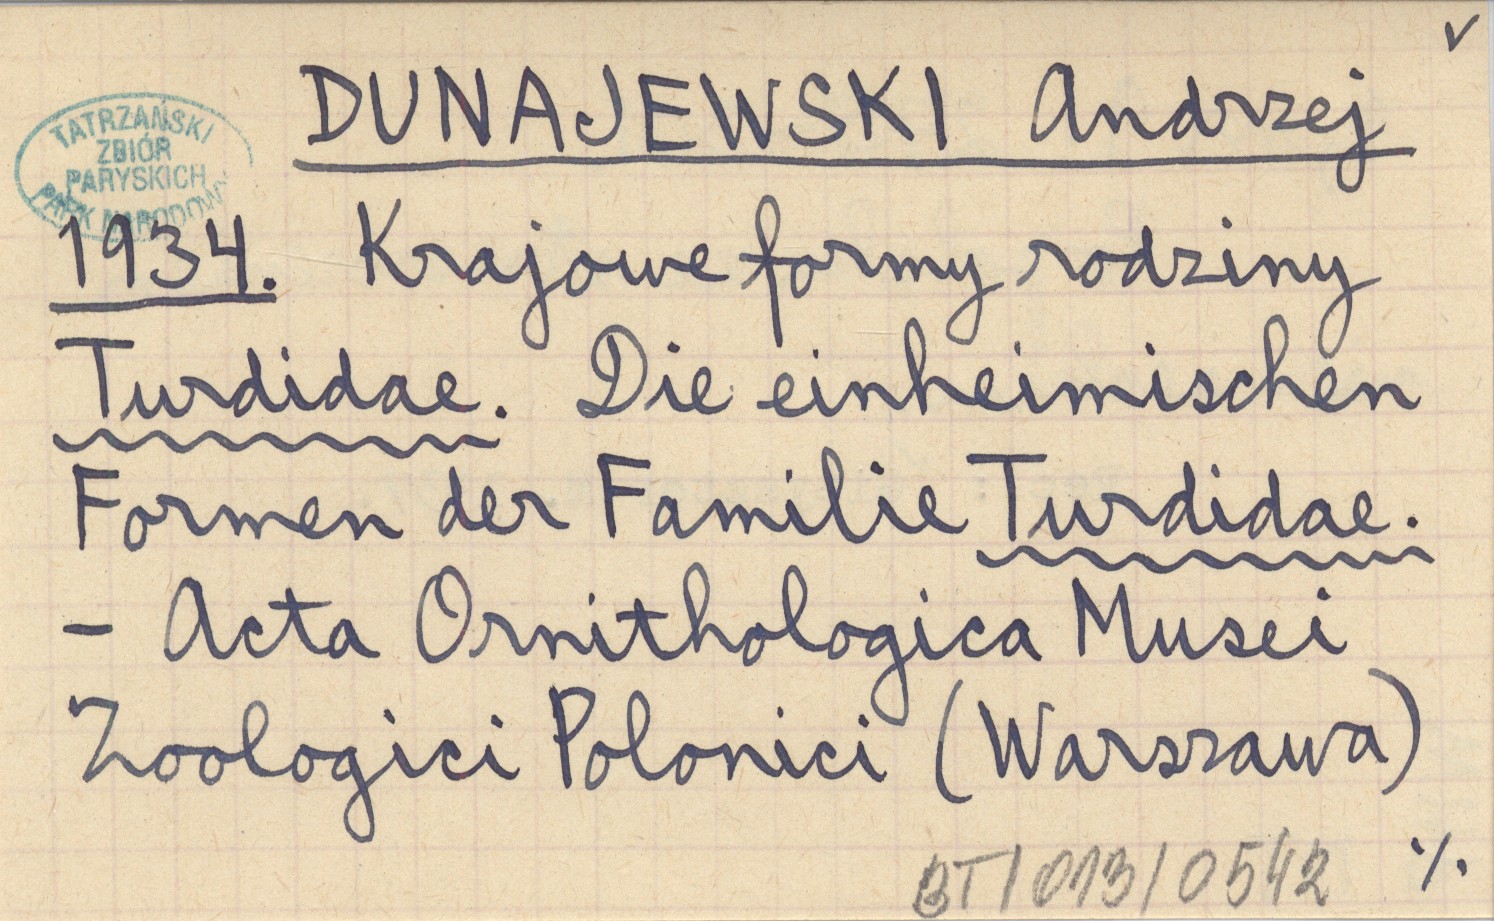 v
DUNAJEWSKI Andrzej
TATRZAŃSKI
ZBIÓR
PARYSKICH
PARK NARODOWY
1934. Krajowe formy rodziny
Turdidae. Die einheimischen
Formen der Familie Turdidae.
- Acta Ornithologica Musei
Zoologici Polonici (Warszawa)
BT/013/0542 ·/.